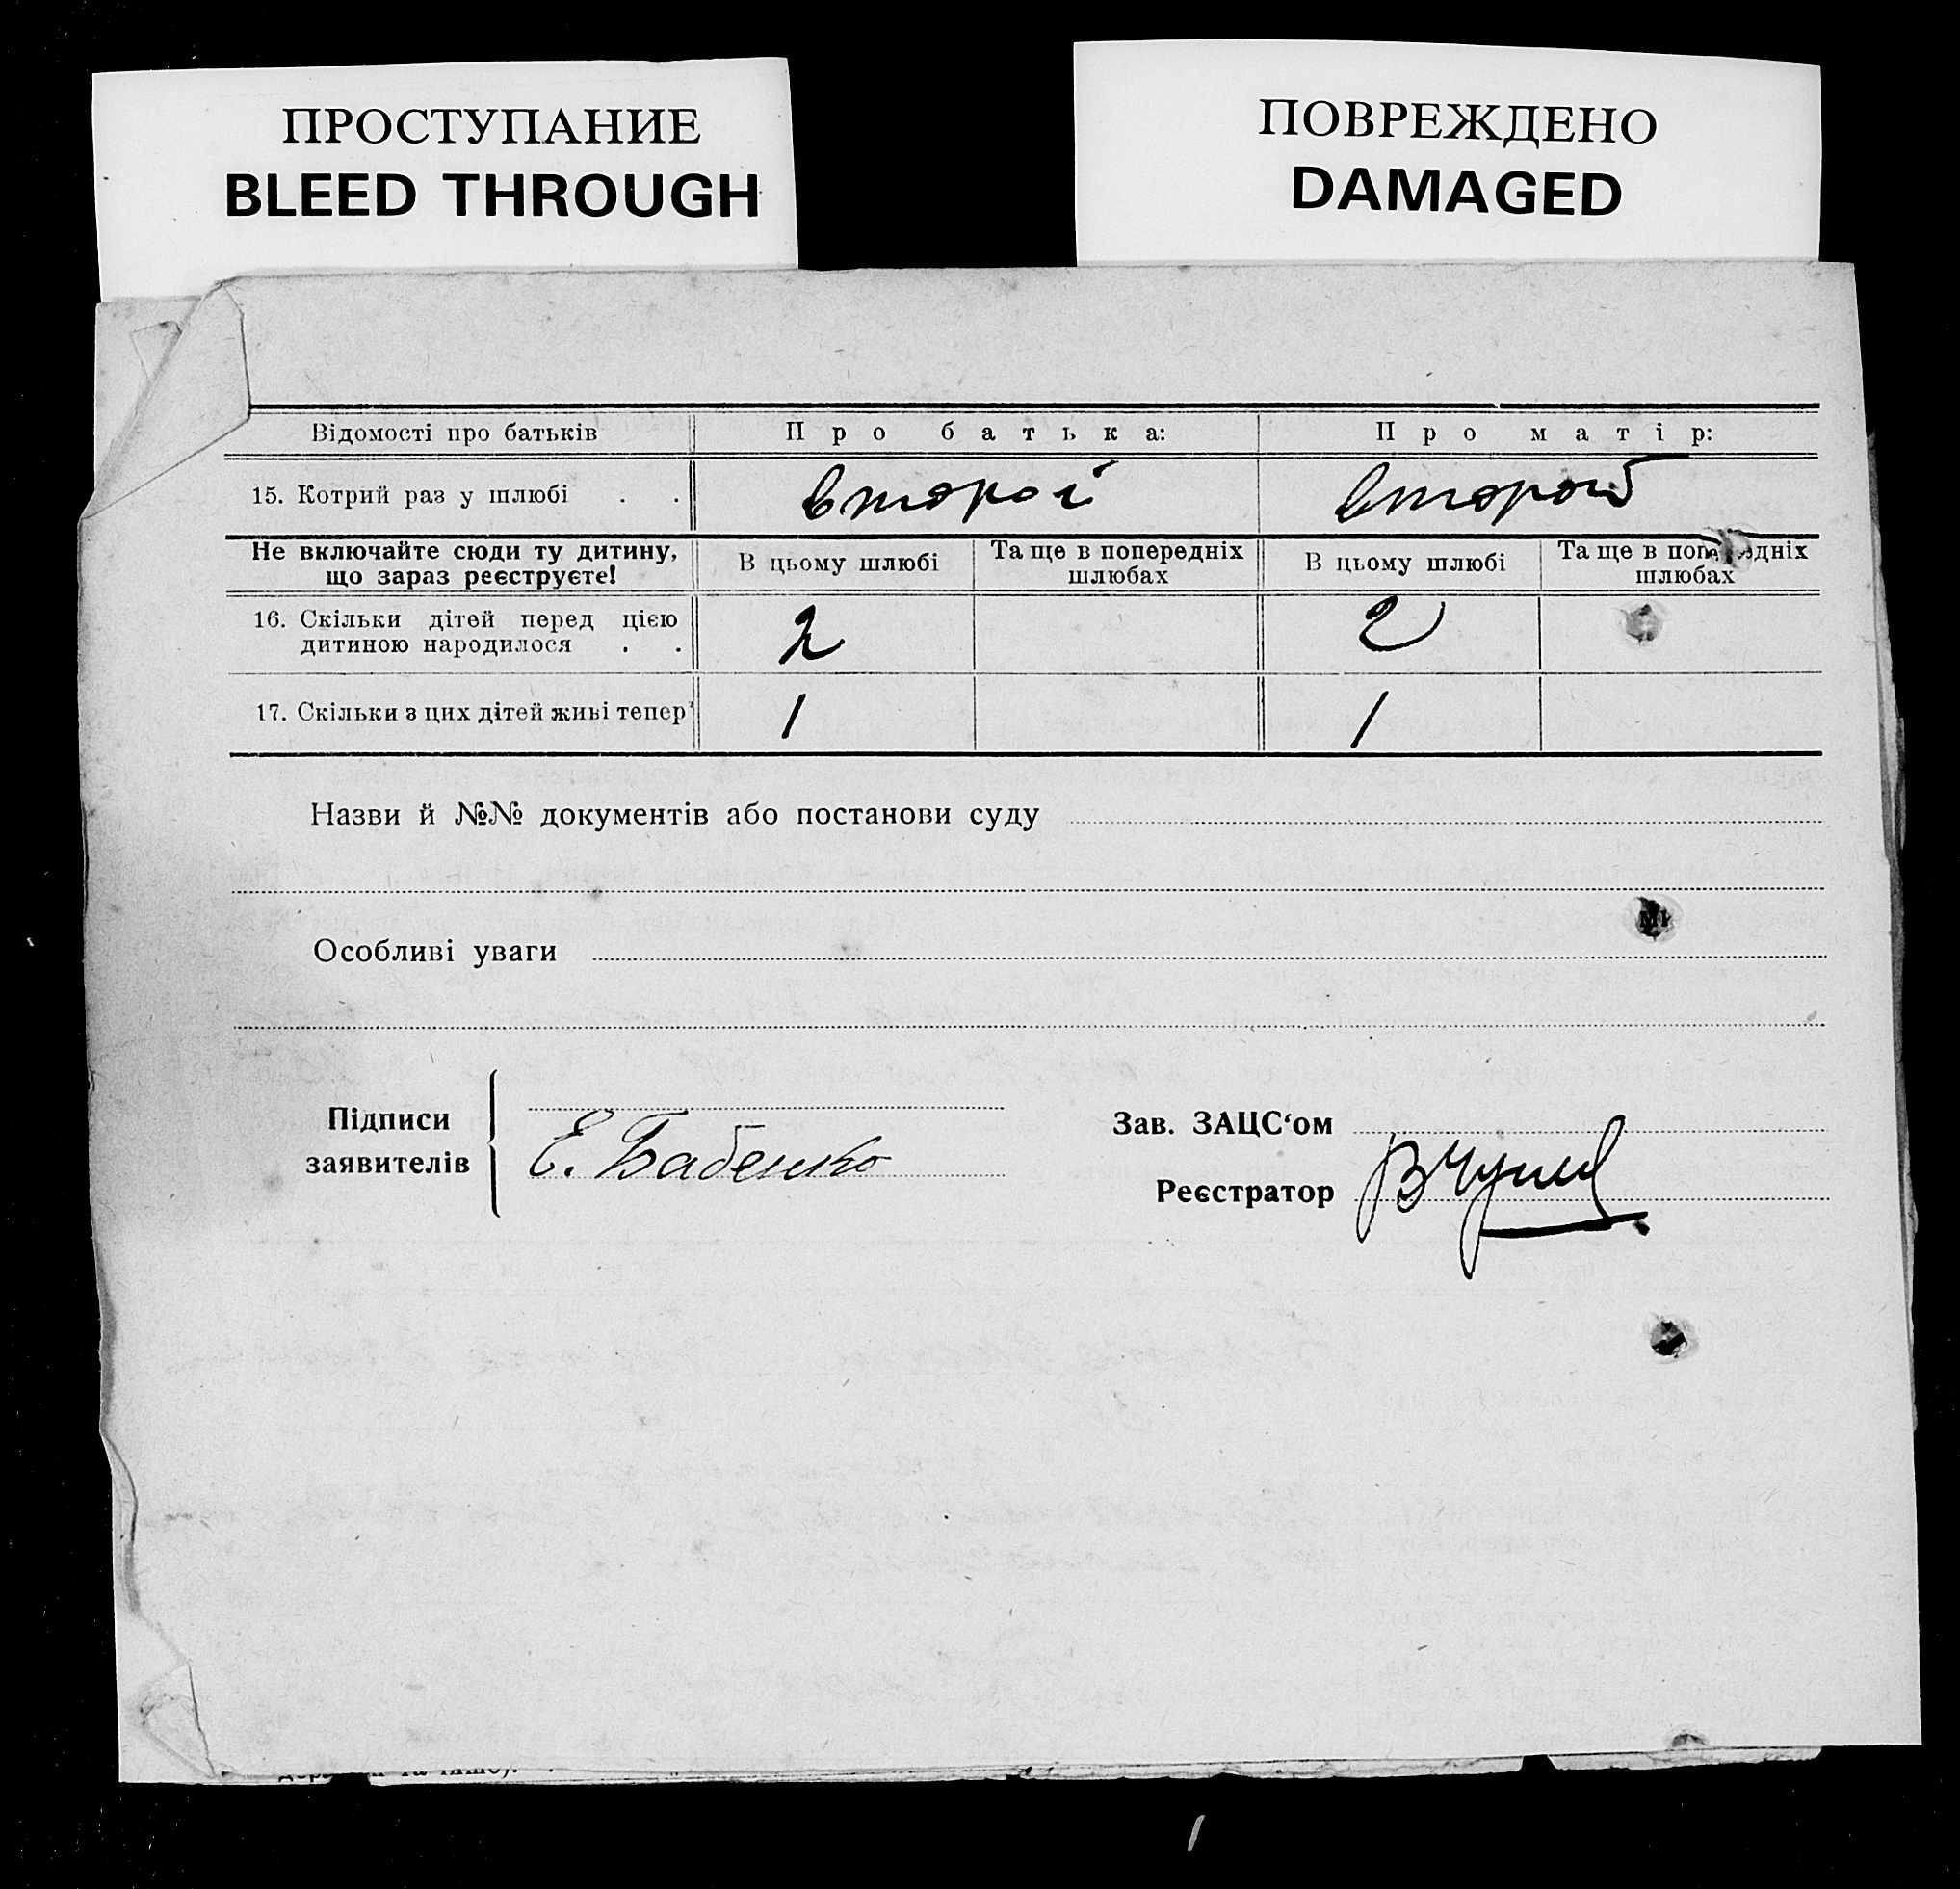 ПРОСТУПАНИЕ
BLEED THROUGH
ПОВРЕЖДЕНО
DAMAGED
Відомості про батьків Про батька: Про матір:
15. Котрий раз у шлюбі . . второй второй
Не включайте сюди ту дитину, що зараз реєструєте! В цьому шлюбі Та ще в попередніх шлюбах В цьому шлюбі Та ще в попередніх шлюбах
16. Скільки дітей перед цією дитиною народилося . . 2 2
17. Скільки з цих дітей живі тепер 1 1
Назви й №№ документів або постанови суду
Особливі уваги
Підписи заявителів
Е. Бабенко
Зав. ЗАЦС‘ом
Реєстратор
та інше).